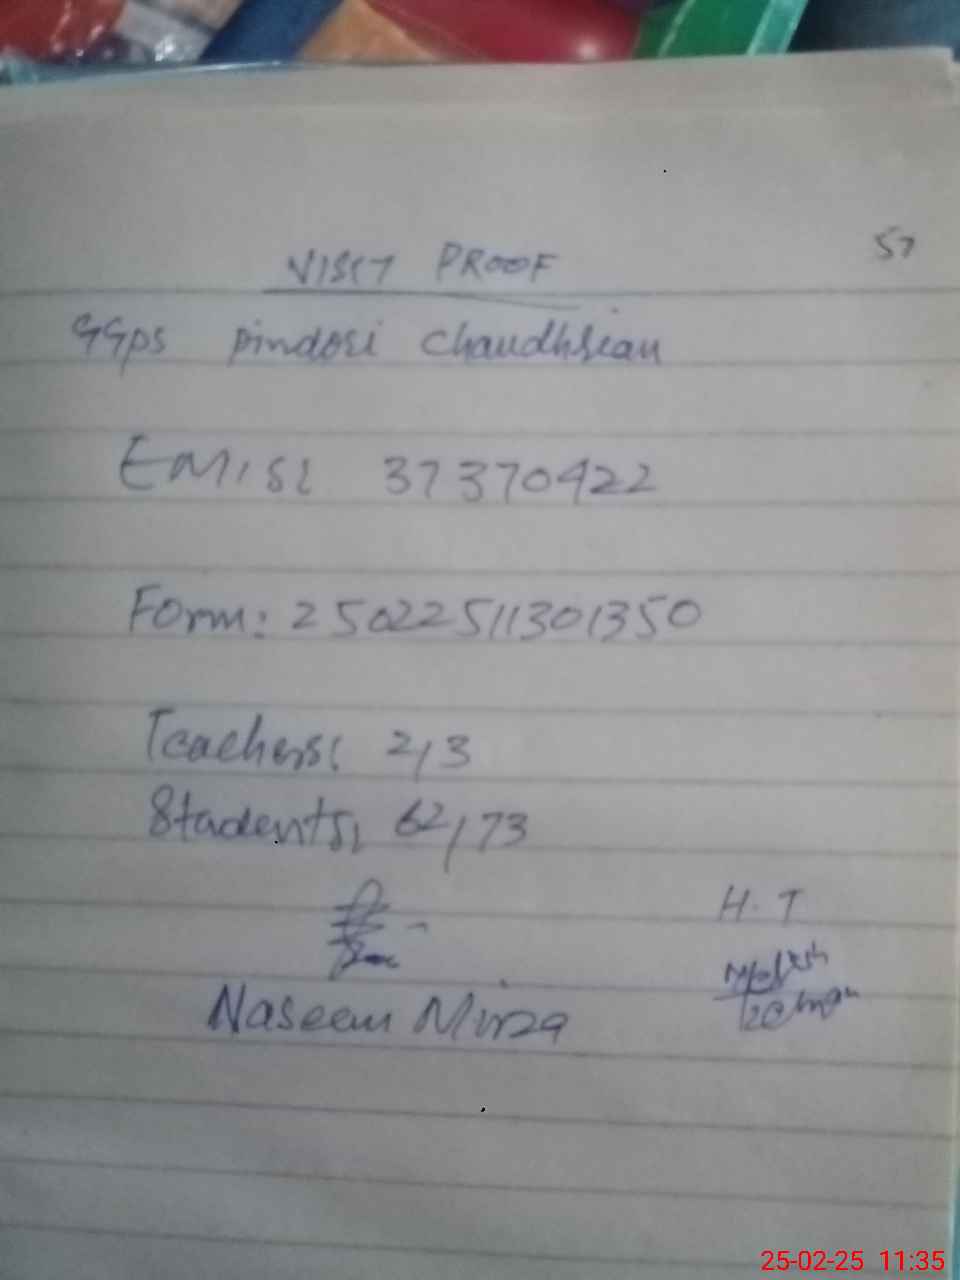 57
VISIT PROOF
GGPS Pindori Chaudhrian
EMIS: 37370422
Form: 25022511301350
Teachers: 2/3
Students: 62/73
H.T
Naseem Mirza
25-02-25 11:35